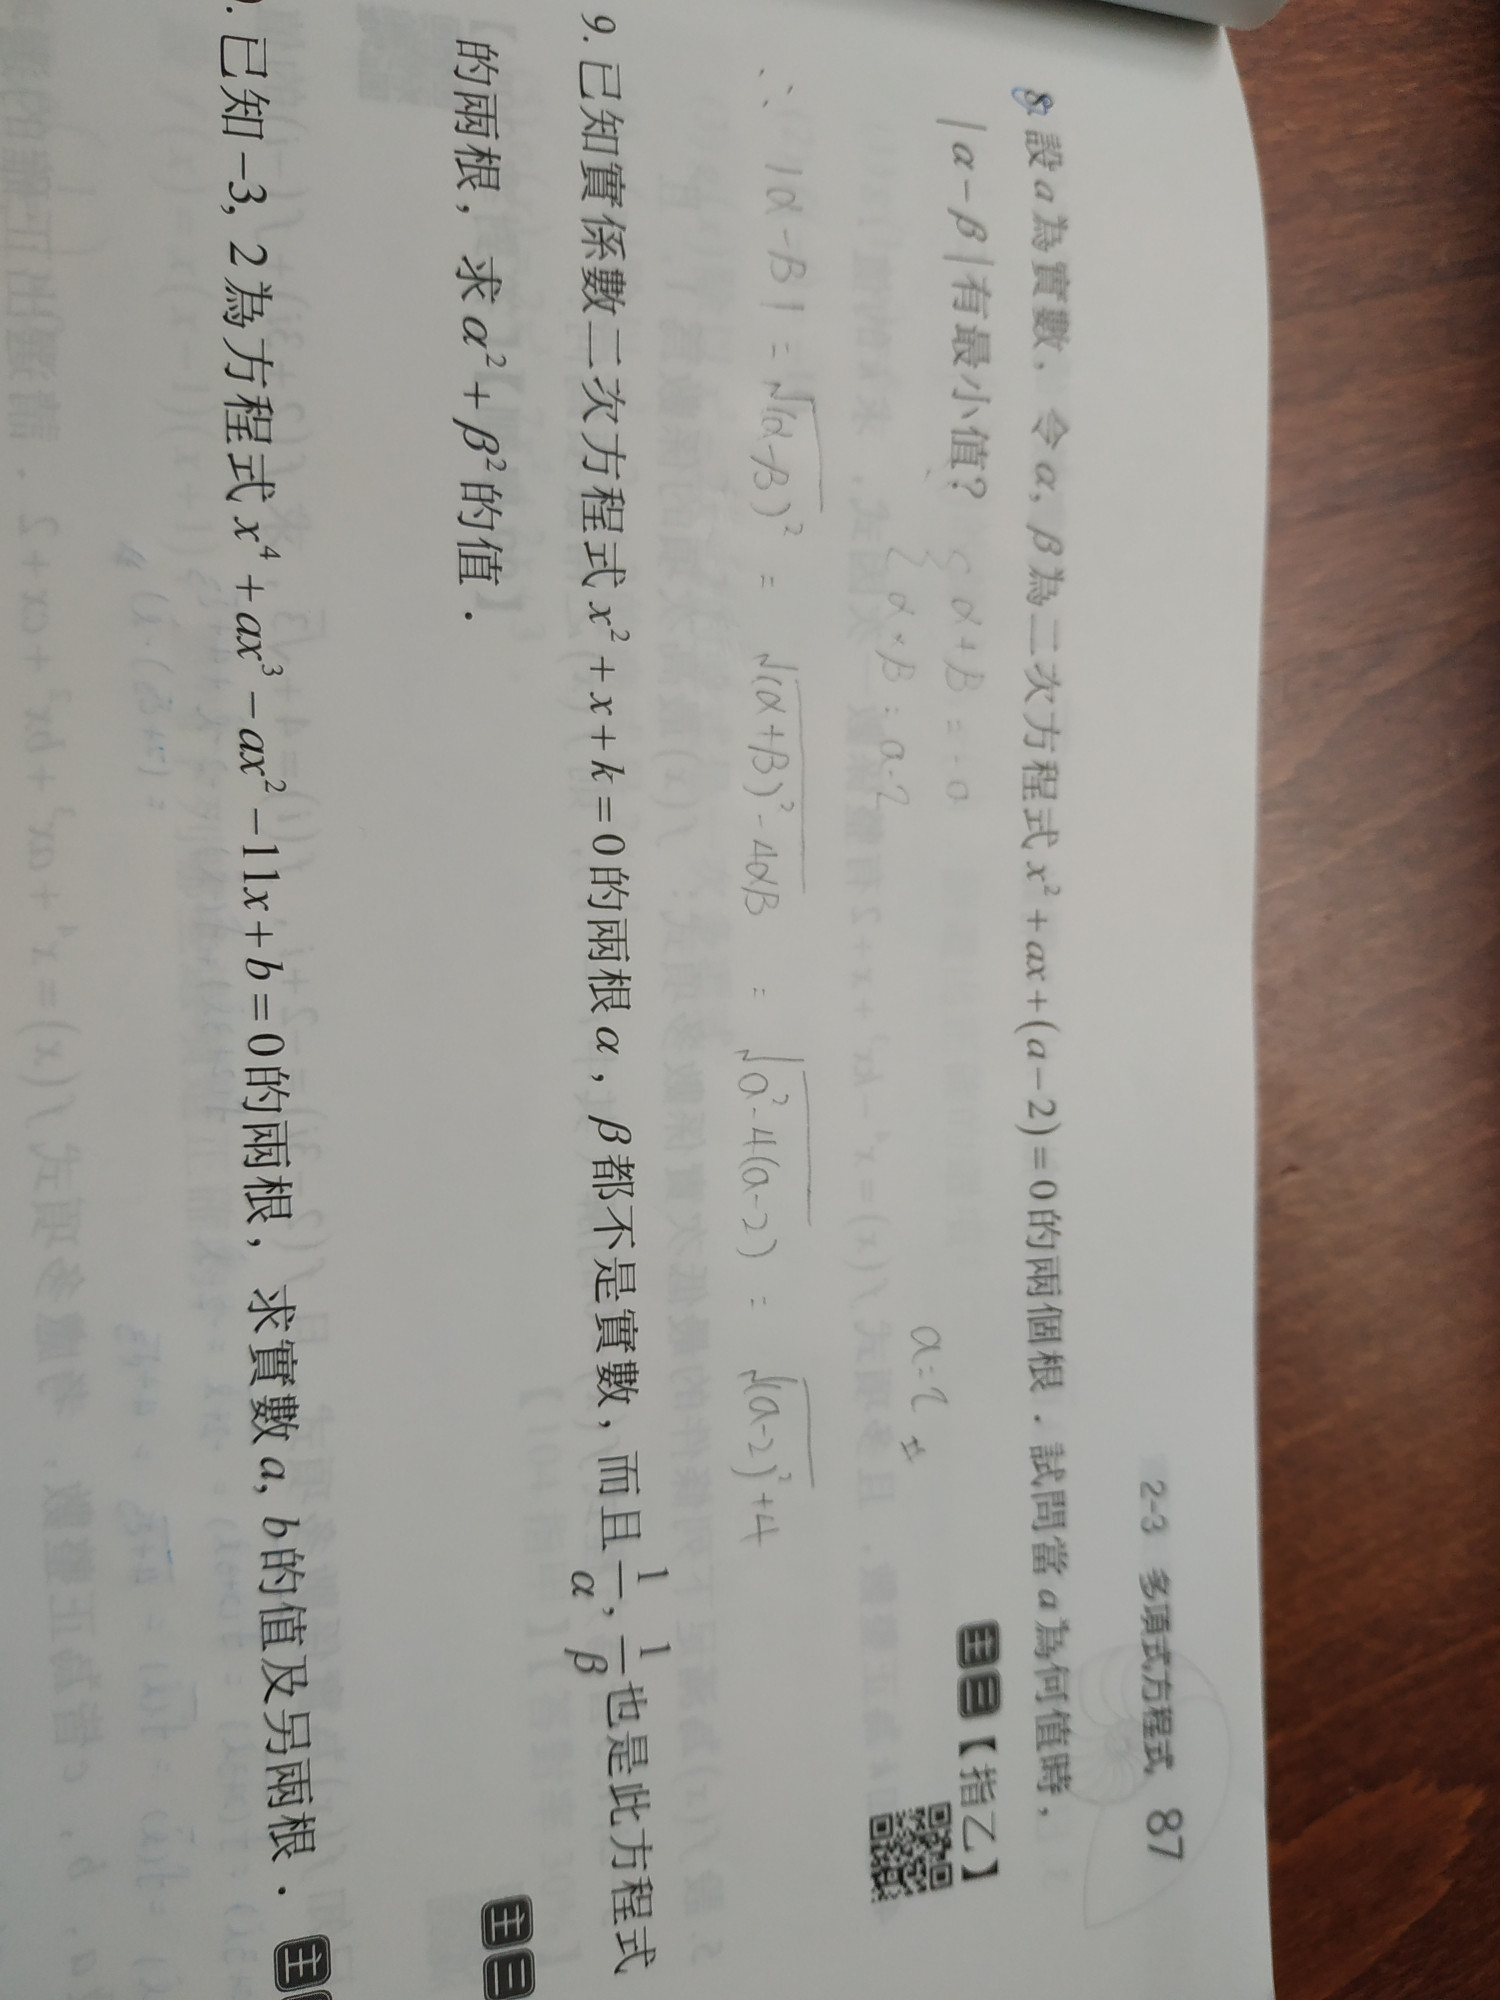 2-3 多項式方程式 87
8. 設a為實數，令α，β為二次方程式x²+ax+(a-2)=0的兩個根．試問當a為何值時，
|α-β|有最小值？ 主 三【指乙】
α+β=-a
α×β=a-2
a=2
∴|α-β|=√(α-β)² = √(α+β)²-4αβ = √a²-4(a-2) = √(a-2)²+4
9. 已知實係數二次方程式x²+x+k=0的兩根α，β都不是實數，而且1/α，1/β也是此方程式
的兩根，求α²+β²的值． 主 三
. 已知-3，2為方程式x⁴+ax³-ax²-11x+b=0的兩根，求實數a，b的值及另兩根． 主